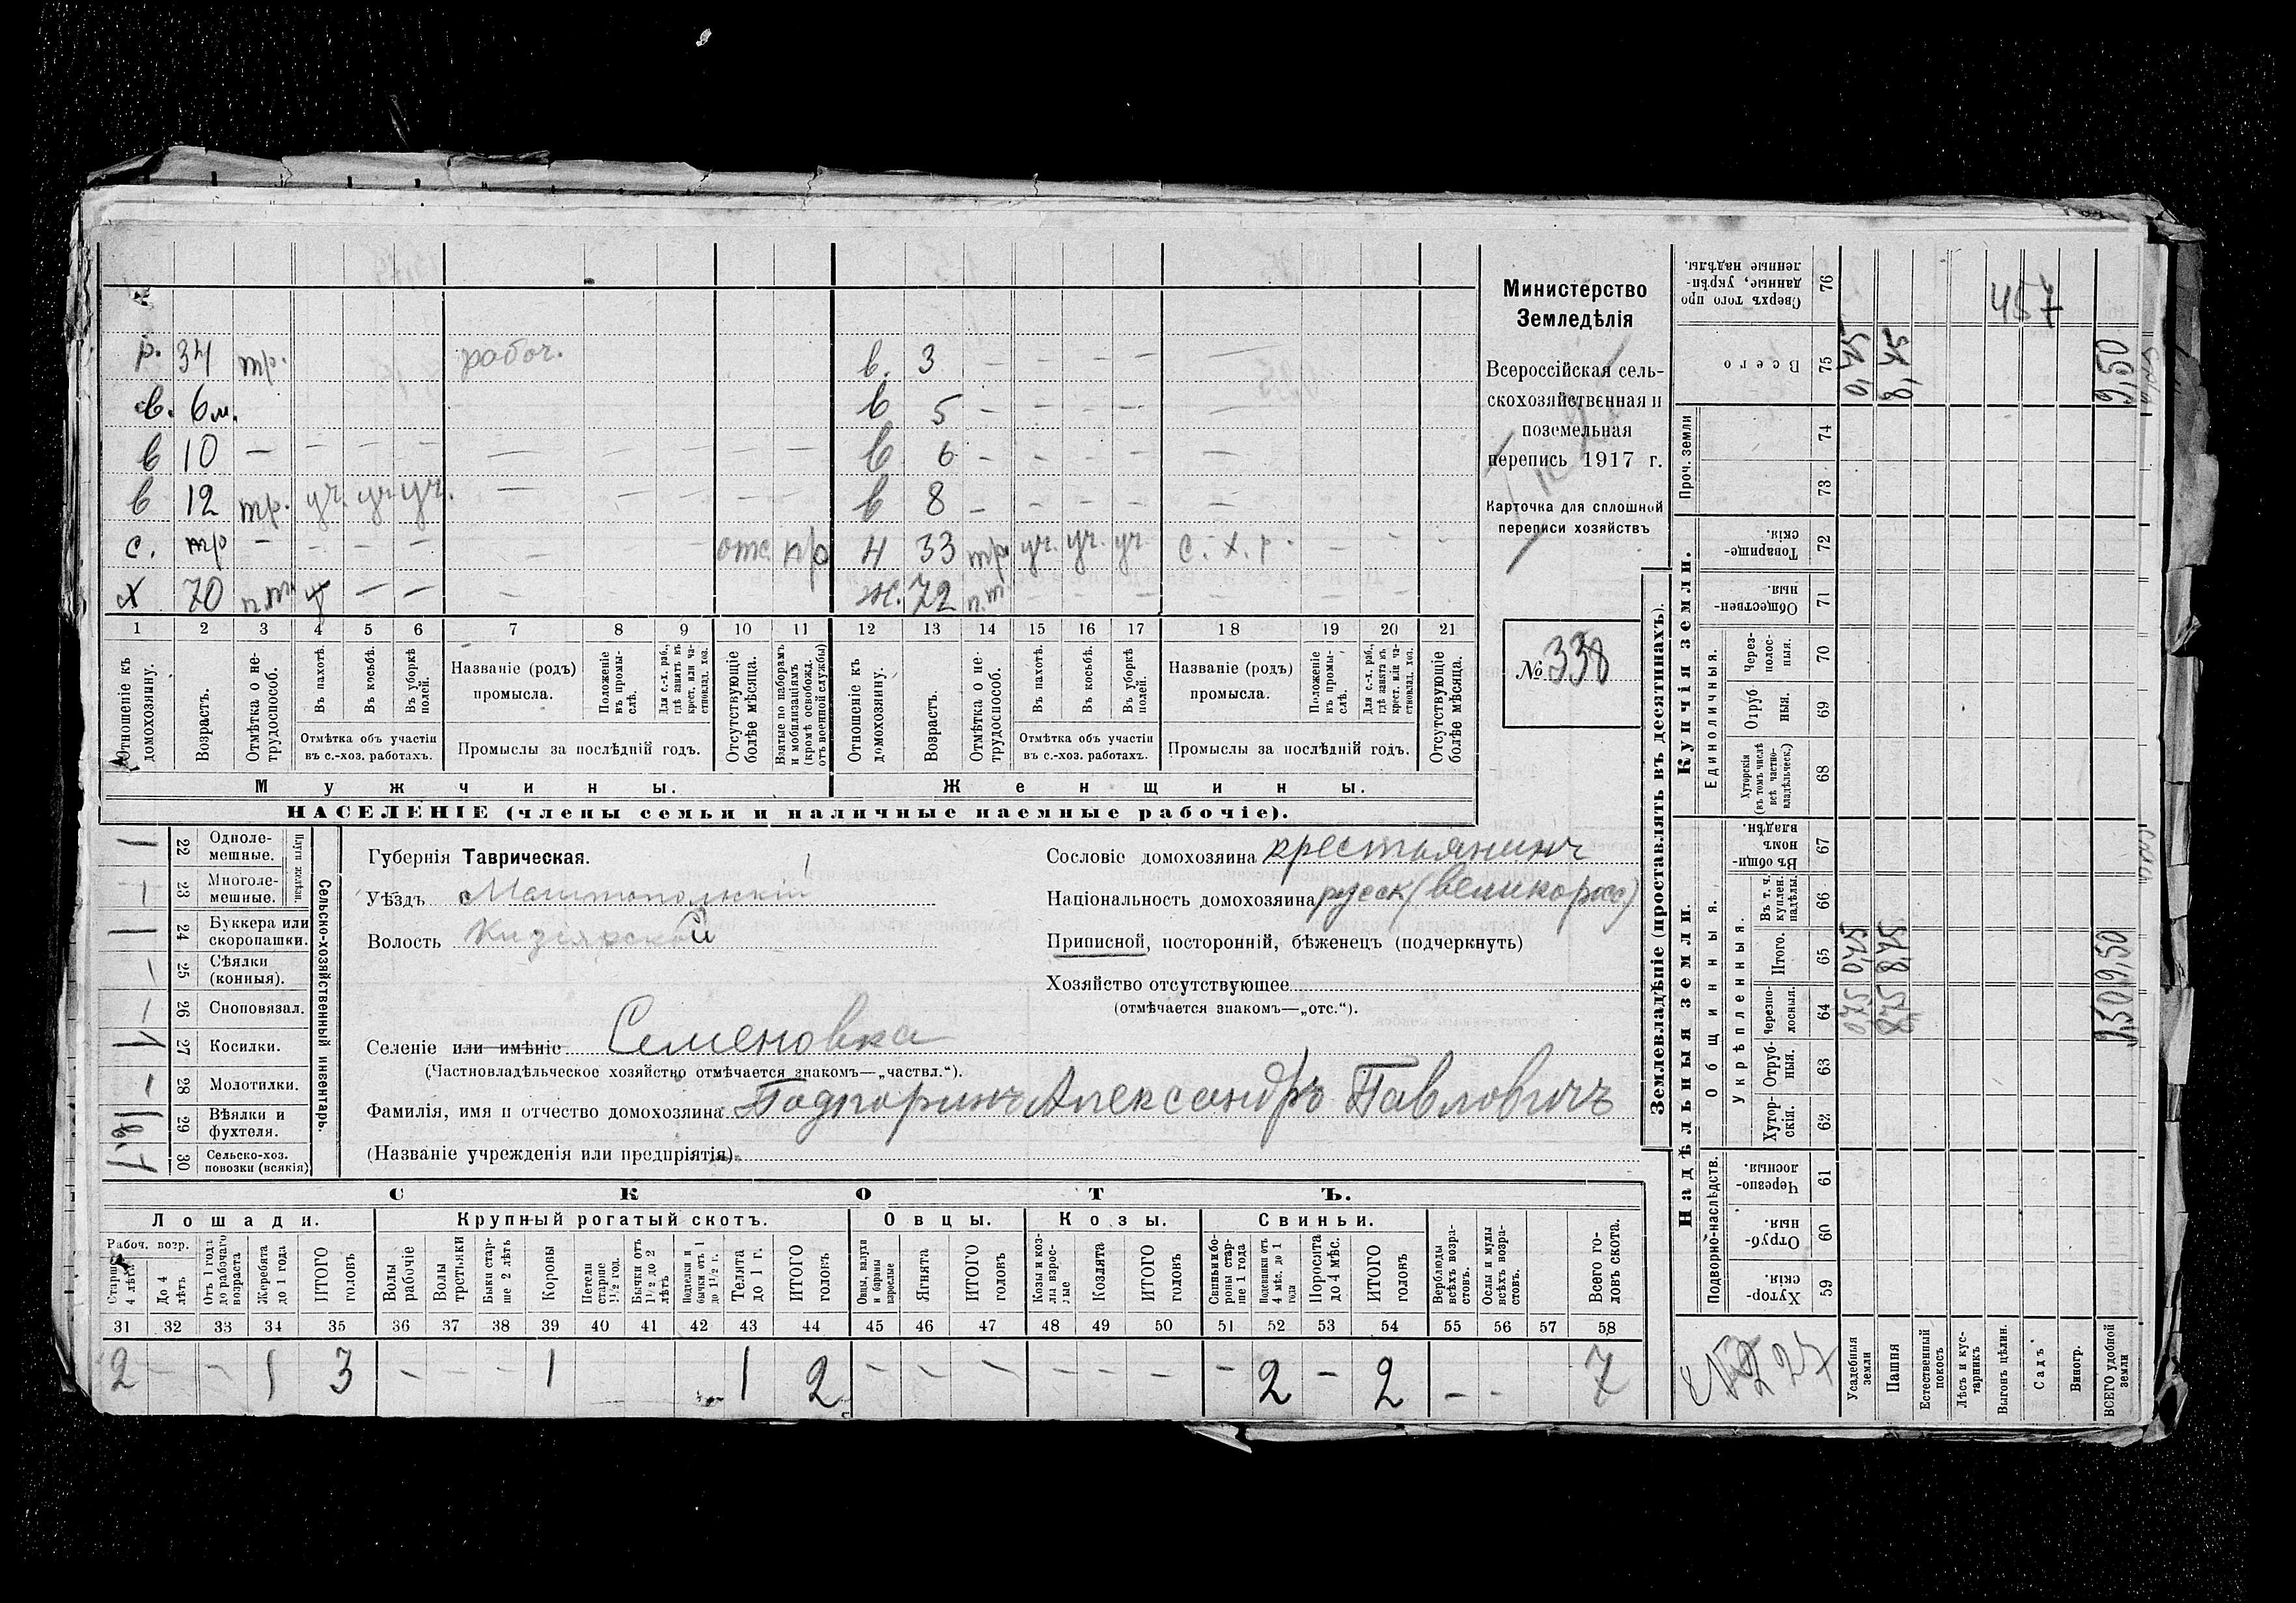 Министерство
Земледѣлія
Всероссійская сель-
скохозяйственная и
поземельная
перепись 1917 г.
Карточка для сплошной
переписи хозяйствъ
№ 338
р. 34 тр. рабоч. в. 3 – – – – –
в. 6 м. в 5 – – – – –
в 10 – – – – – – – – – в 6 – – – – –
в 12 тр. уч. уч. уч. – – – – – в 8 – – – – –
с. – – – – – – – отс. пр н 33 тр. уч. уч. уч. с. х. р. – – –
х 70 п.т. – – – – – ж. 72 п.т. – – – – – – –
1 2 3 4 5 6 7 8 9 10 11 12 13 14 15 16 17 18 19 20 21
Отношеніе къ домохозяину.
Возрастъ.
Отмѣтка о не-трудоспособ.
Въ пахотѣ.
Въ косьбѣ.
Въ уборкѣ полей.
Отмѣтка объ участіи въ с.-хоз. работахъ.
Названіе (родъ) промысла.
Положеніе въ промы-слѣ.
Для с.-х. раб., гдѣ занятъ въ крест. или ча-стновлад. хоз.
Промыслы за послѣдній годъ.
Отсутствующіе болѣе мѣсяца.
Взятые по наборамъ и мобилизаціямъ (кромѣ освобожд. отъ военной службы)
Отношеніе къ домохозяину.
Возрастъ.
Отмѣтка о не-трудоспособ.
Въ пахотѣ.
Въ косьбѣ.
Въ уборкѣ полей.
Отмѣтка объ участіи въ с.-хоз. работахъ.
Названіе (родъ) промысла.
Положеніе въ промы-слѣ.
Для с.-х. раб., гдѣ занята въ крест. или ча-стновлад. хоз.
Промыслы за послѣдній годъ.
Отсутствующіе болѣе мѣсяца.
Мужчины. Женщины.
НАСЕЛЕНІЕ (члены семьи и наличные наемные рабочіе).
Сельско-хозяйственный инвентарь.
Плуги желѣзн.
1 22 Одноле-мешные.
– 23 Многоле-мешные.
1 24 Буккера или скоропашки.
– 25 Сѣялки (конныя).
– 26 Сноповязал.
1 27 Косилки.
– 28 Молотилки.
29 Вѣялки и фухтеля.
30 Сельско-хоз. повозки (всякія)
Губернія Таврическая.
Уѣздъ Мелитопольскій
Волость Кизіярской
Селеніе или имѣніе Семеновка
(Частновладѣльческое хозяйство отмѣчается знакомъ—„частвл.“).
Фамилія, имя и отчество домохозяина Подгоринъ Александръ Павловичъ
(Названіе учрежденія или предпріятія)
Сословіе домохозяина крестьянинъ
Національность домохозяина русск (великорос)
Приписной, посторонній, бѣженецъ (подчеркнуть)
Хозяйство отсутствующее
(отмѣчается знакомъ—„отс.“).
СКОТЪ.
Лошади. Крупный рогатый скотъ. Овцы. Козы. Свиньи.
Рабоч. возр.
Старше 4 лѣтъ
До 4 лѣтъ
Отъ 1 года до рабочаго возраста
Жеребята до 1 года
ИТОГО головъ
Волы рабочіе
Волы третьяки
Быки стар-ше 2 лѣтъ
Коровы
Нетели старше 1½ год.
Бычки отъ 1½ до 2 лѣтъ
Подтелки и бычки отъ 1 до 1½ г.
Телята до 1 г.
ИТОГО головъ
Овцы, валухи и бараны взрослые
Ягнята
ИТОГО головъ
Козы и коз-лы взрос-лые
Козлята
ИТОГО головъ
Свиньи и бо-ровы стар-ше 1 года
Подсвинки отъ 4 мѣс. до 1 года
Поросята до 4 мѣс.
ИТОГО головъ
Верблюды всѣхъ возра-стовъ.
Ослы и мулы всѣхъ возра-стовъ.
Всего го-ловъ скота.
31 32 33 34 35 36 37 38 39 40 41 42 43 44 45 46 47 48 49 50 51 52 53 54 55 56 57 58
2 – – 1 3 – – – 1 1 2 – – – – – – – 2 – 2 – – 7
Землевладѣніе (проставлять въ десятинахъ).
Надѣльныя земли. Купчія земли.
Подворно-наслѣдств. Общинныя. Укрѣпленныя. Единоличныя. Проч. земли
59 Хутор-скія.
60 Отруб-ныя.
61 Черезпо-лосныя.
62 Хутор-скія.
63 Отруб-ныя.
64 Черезпо-лосныя.
65 Итого.
66 Въ т. ч. куплен. надѣлы.
67 Въ общи-нномъ владѣн.
68 Хуторскія (въ томъ числѣ всѣ частно-владѣльческ.)
69 Отруб-ныя.
70 Через-полос-ныя.
71 Обществен-ныя
72 Товарище-скія.
73 74
75 Всего
76 Сверхъ того про-данные, укрѣп-ленные надѣлы.
Усадебныя земли
Пашня
Естественный покосъ
Лѣсъ и кус-тарникъ
Выгонъ цѣлин.
Садъ
Виногр.
ВСЕГО удобной земли
9,50 9,50
9,50
457